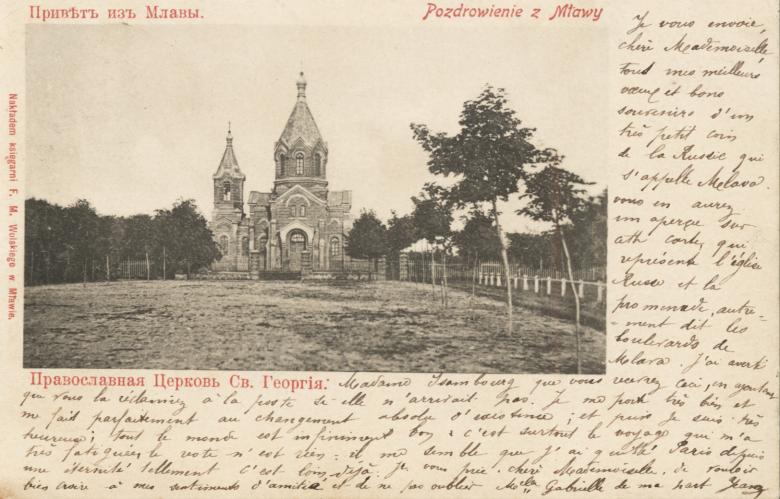 Привѣтъ изъ Млавы.
Pozdrowienie z Mławy
Nakładem księgarni F. M. Wolskiego w Mławie.
Православная Церковь Св. Георгія.
Je vous envoie,
chère Mademoiselle,
tous mes meilleurs
vœux et bons
souvenirs d'un
très petit coin
de la Russie qui
s'appelle Mlava.
vous en aurez
un aperçu sur
carte, qui
représente l'église
Russe et la
promenade, autre-
-ment dit les
boulevards de
Mlava. J'ai averti
Madame Isambourg que vous recevrez ceci, en ajoutant
que vous la réclamiez à la poste si elle n'arrivait pas. Je me porte très bien et
me fait parfaitement au changement absolu d'existence; et puis je suis très
heureuse; tout le monde est infiniment bon, c'est surtout le voyage qui m'a
très fatiguée le reste n'est rien. il me semble que j'ai quitté Paris depuis
une éternité tellement c'est loin déjà. Je vous prie, chère Mademoiselle, de vouloir
bien croire à mes sentiments d'amitié et de ne pas oublier Gabrielle de ma part